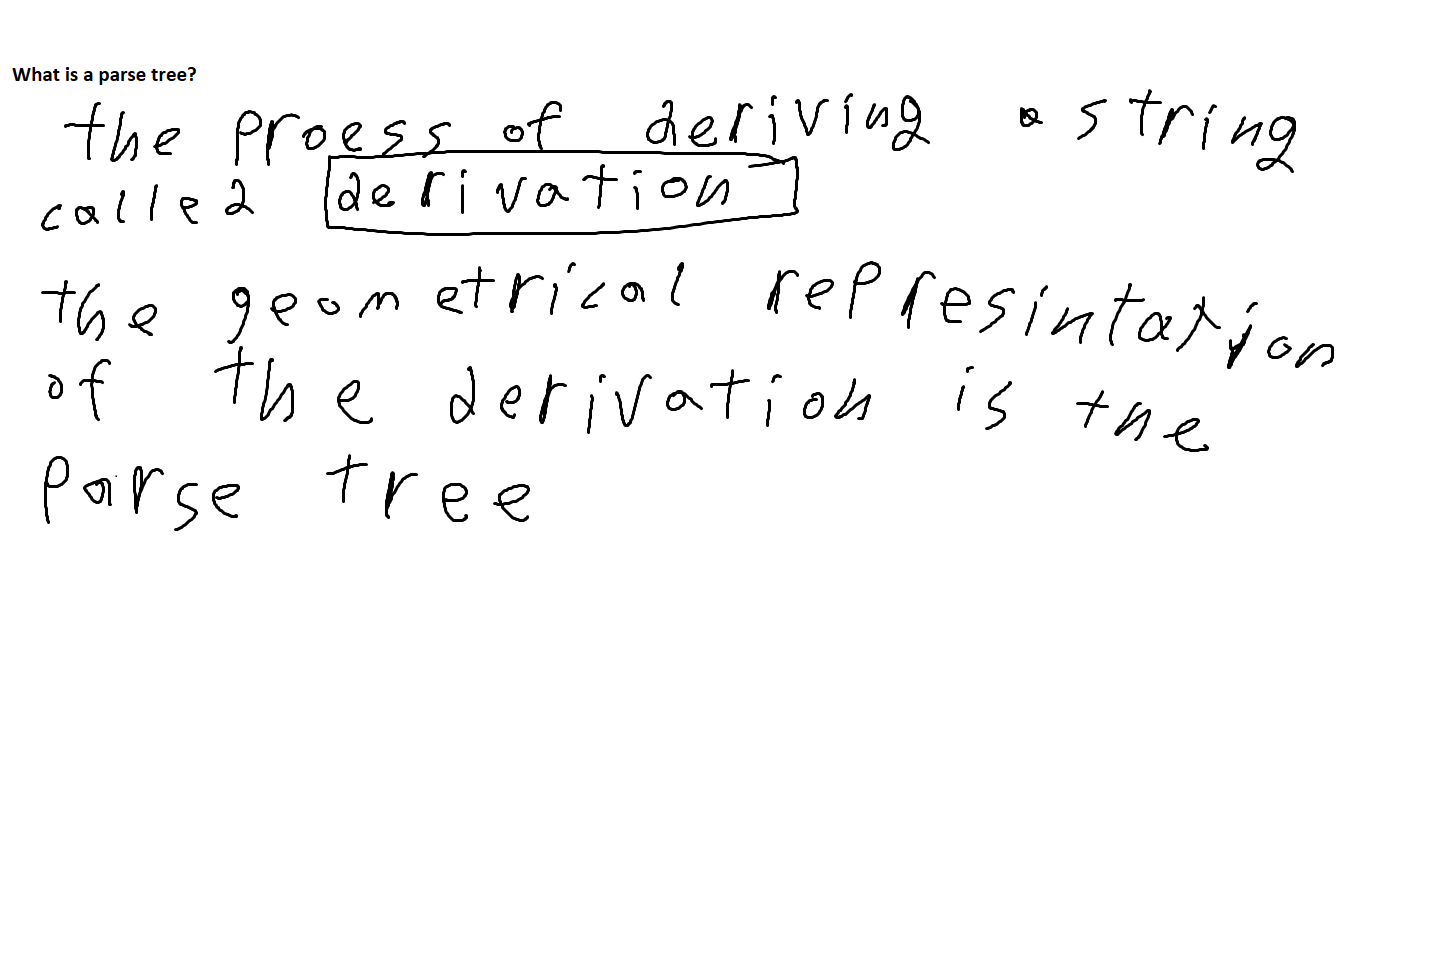 What is a parse tree?
the proess of deriving a string
called derivation
the geometrical represintation
of the derivation is the
Parse tree